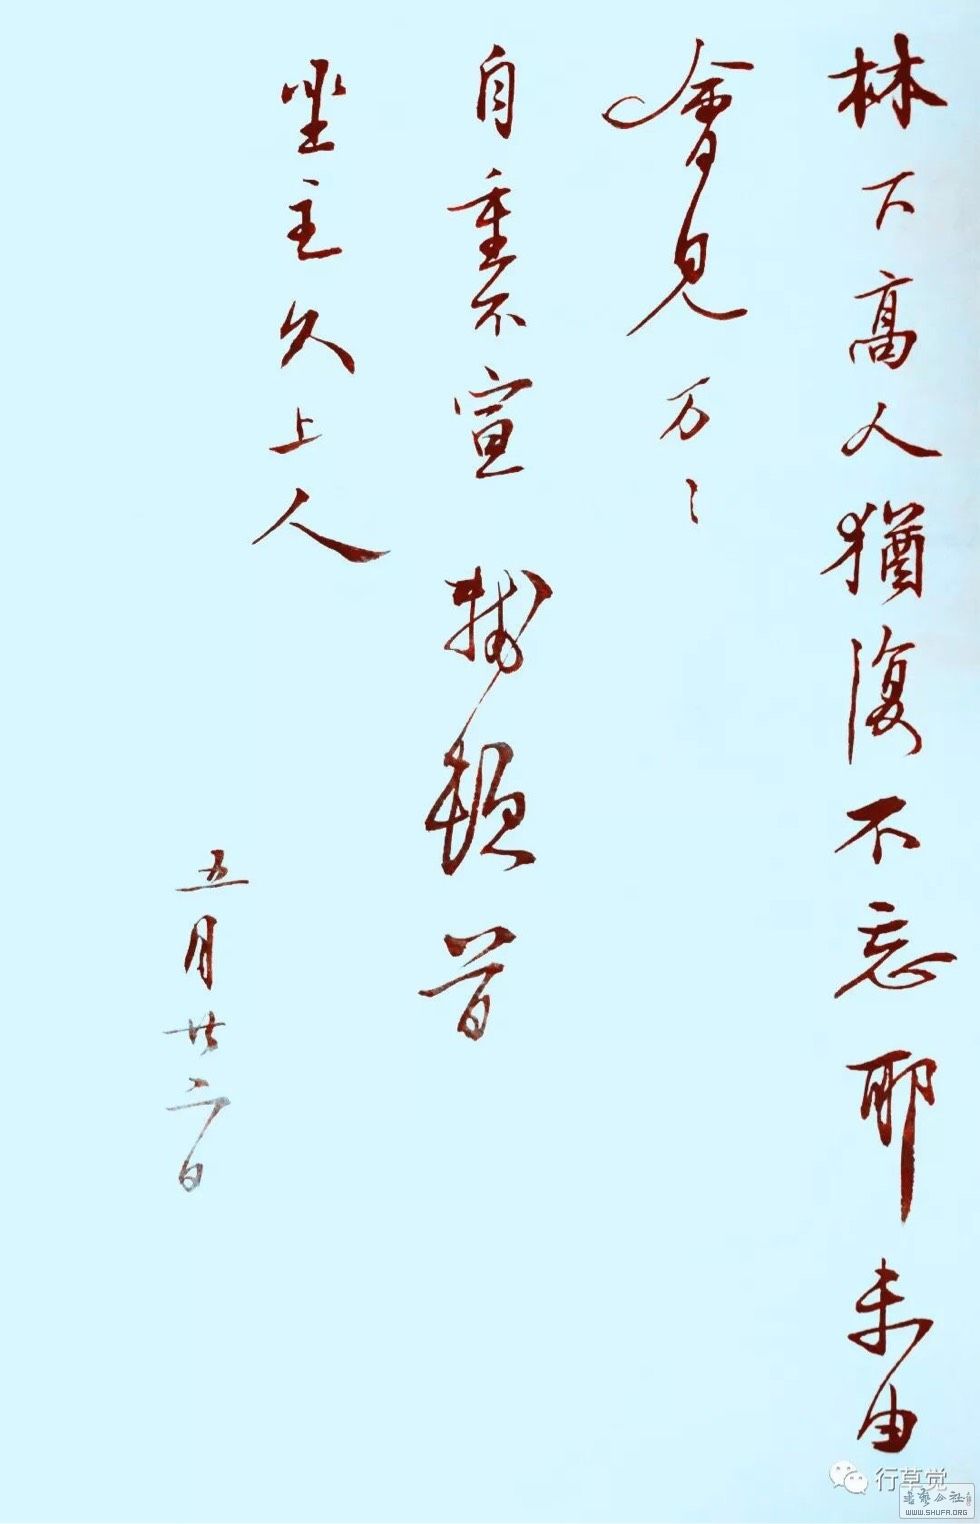 林下高人猶復不忘耶未由
會見万〻
自重不宣 軾頓首
坐主久上人
五月廿二日
行草觉
書藝公社
WWW.SHUFA.ORG